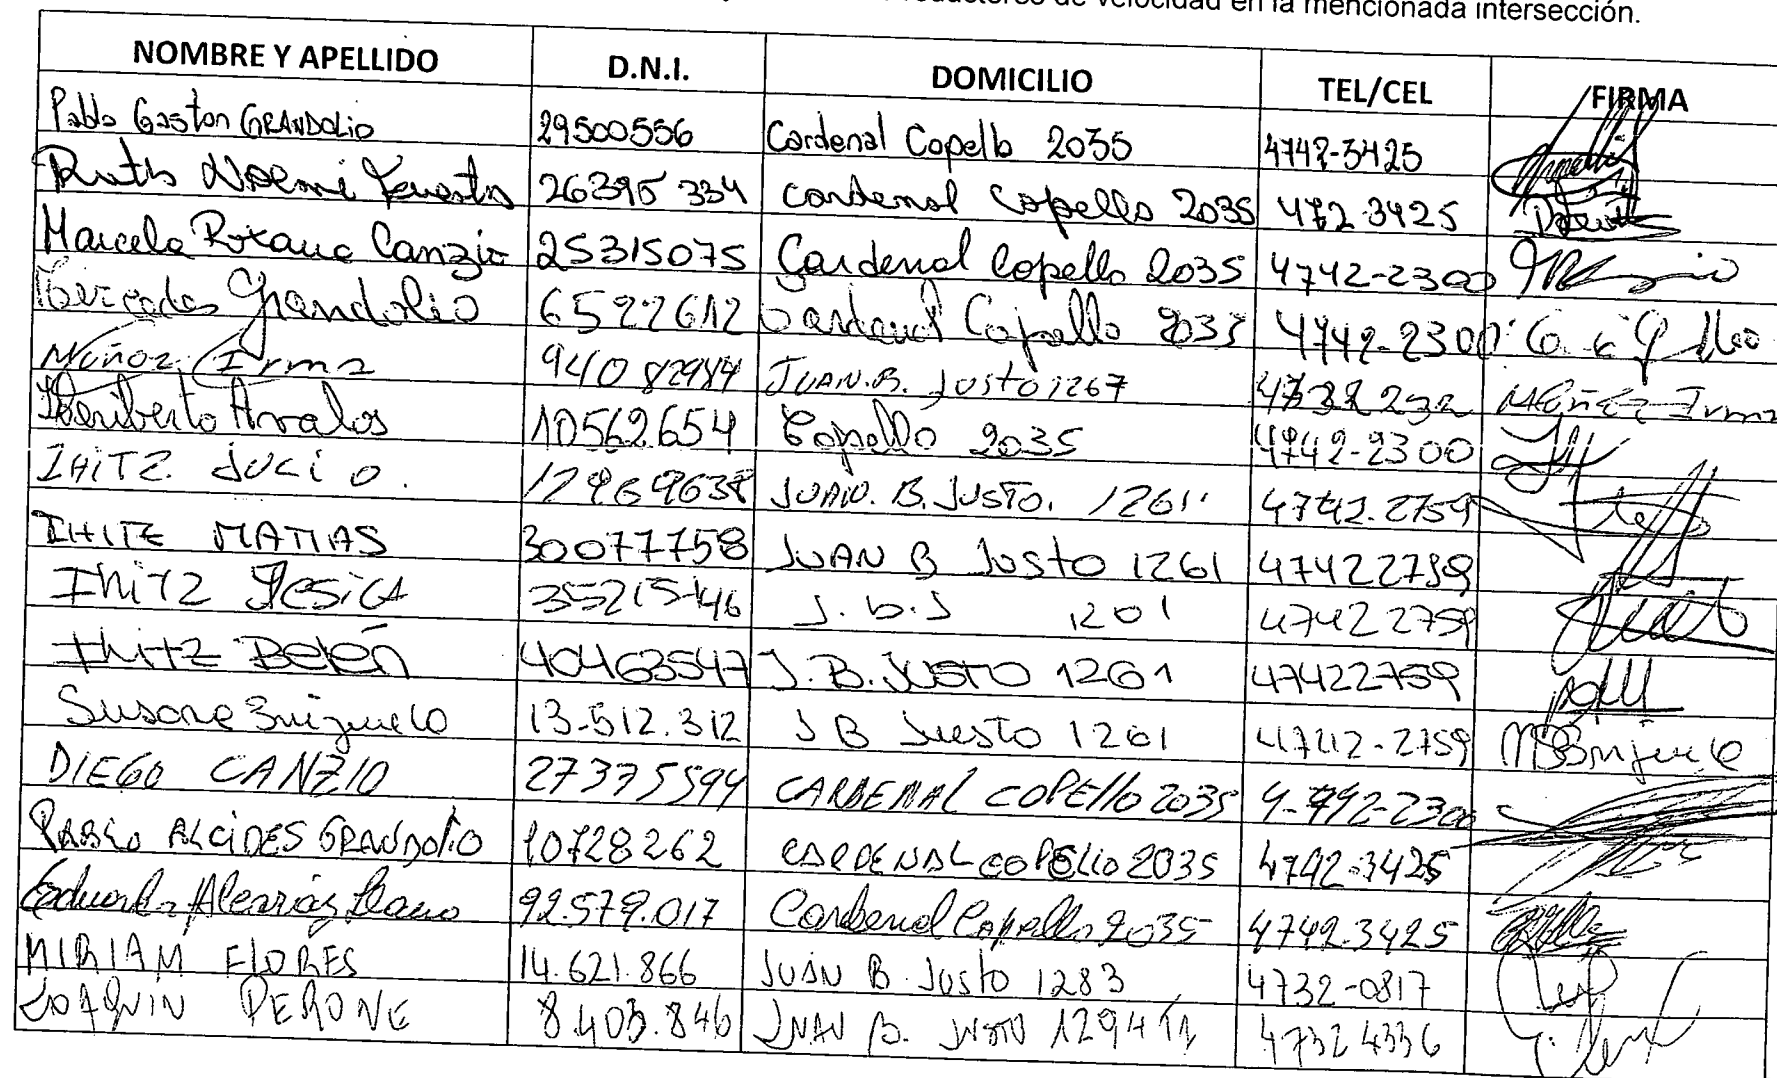 reductores de velocidad en la mencionada intersección.
NOMBRE Y APELLIDO D.N.I. DOMICILIO TEL/CEL FIRMA
Pablo Gaston GRANDOLIO 29500556 Cardenal Copello 2035 4742-3425
Ruth Noemi 26395 334 Cardenal Copello 2035 472-3425
Marcela Roxana Canzio 25315075 Cardenal Copello 2035 4742-2300
Grandolio 6522612 Cardenal Copello 2035 4742-2300
Muñoz Irma JUAN.B. JUSTO 1267 Muñoz Irma
Heriberto Avalos 10562654 Copello 2035 4742-2300
IHITZ JULIO. 12969638 JUAN. B. JUSTO. 1261 4742.2759
IHITZ MATIAS 30077758 JUAN B JUSTO 1261 47422759
IhiTZ YESiCA 35215446 J. b. J 1201 47422759
IhitZ Belén 40463547 J. B. JUSTO 1261 47422759
Susana 13.512.312 J B Justo 1261 4742-2759
DIEGO CANZIO 27375594 CARDENAL COPEllO 2035 4-742-2300
PABLO ALCIDES GRANDOLIO 10728262 CARDENAL COPELLO 2035 4742-3425
92.579.017 Cardenal Copello 2035 4742.3425
MIRIAM FLORES 14.621.866 JUAN B. Justo 1283 4732-0817
JOAQUIN PERONE 8.403.846 JUAN B. JUSTO 1294 4732 4336